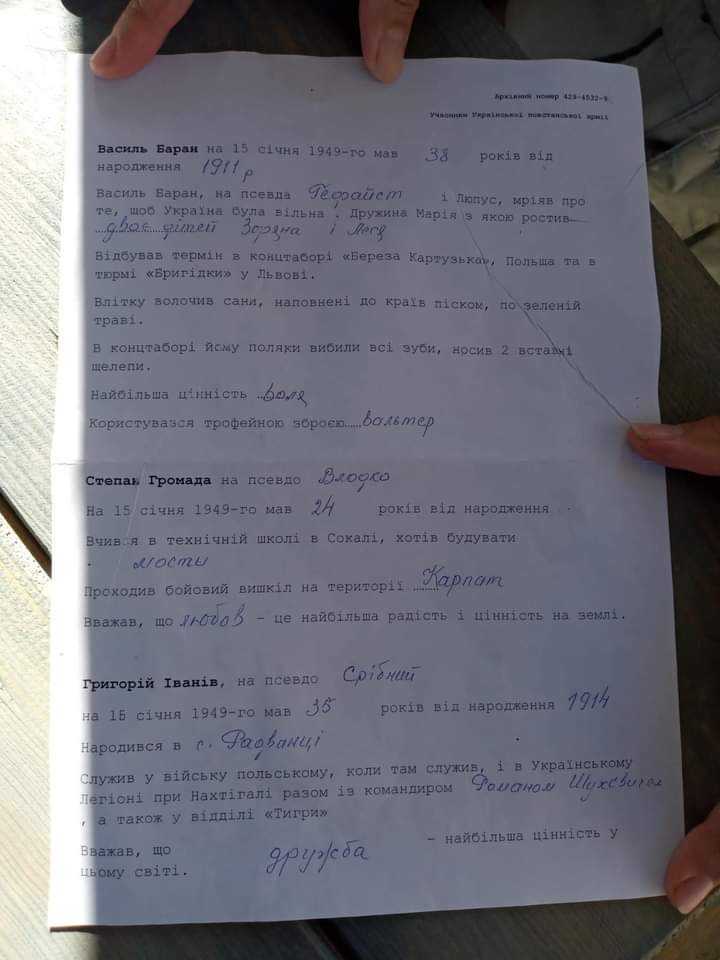 Архівний номер 429-4532-9
Учасники Української повстанської армії
Василь Баран на 15 січня 1949-го мав 38 років від
народження 1911 р
Василь Баран, на псевда Гефайст і Люпус, мріяв про
те, щоб Україна була вільна. Дружина Марія з якою ростив
двоє дітей Зоряна і Леся
Відбував термін в концтаборі «Береза Картузька», Польща та в
тюрмі «Бригідки» у Львові.
Влітку волочив сани, наповнені до країв піском, по зеленій
траві.
В концтаборі йому поляки вибили всі зуби, носив 2 вставні
щелепи.
Найбільша цінність ..воля
Користувазся трофейною зброєю......вальтер
Степан Громада на псевдо Влодко
На 15 січня 1949-го мав 24 років від народження
Вчився в технічній школі в Сокалі, хотів будувати
мости
Проходив бойовий вишкіл на території ........Карпат
Вважав, що любов – це найбільша радість і цінність на землі.
Григорій Іванів, на псевдо Срібний
на 15 січня 1949-го мав 35 років від народження 1914
Народився в с. Радванці
Служив у війську польському, коли там служив, і в Українському
Легіоні при Нахтігалі разом із командиром Романом Шухевичом
, а також у відділі «Тигри»
Вважав, що дружба – найбільша цінність у
цьому світі.